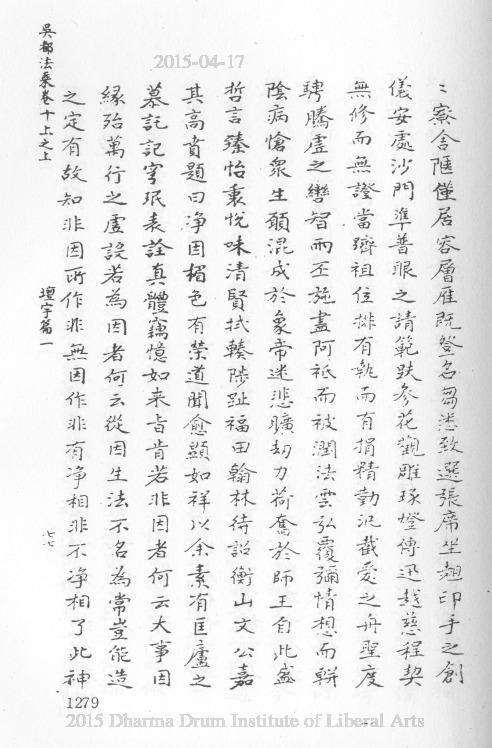 2015-04-17
吳都法乘卷十上之上
壇宇篇一
七七
〻察舍陋僅居容層雁既登名芻悉致選張席坐翹印手之創
儀安處沙門準普眼之請範趺參花觀雕琢燈傳迅越慈程契
無修而無證當躋祖位排有執而有捐精勤汎截愛之舟聖度
騁騰虛之轡智雨丕施盡阿祇而被潤法雲弘覆彌情想而斡
陰病愴衆生願混成於象帝迷悲曠劫力荷奮於師王自此盛
哲言臻怡裏悅味清賢拭輳陟趾福田翰林待詔衡山文公嘉
其高賁題曰净因楣色有榮道聞愈顯如祥以余素有匡廬之
慕託記宇珉表詮真體竊憶如来旨肯若非因者何云大事因
緣殆萬行之虛設若為因者何云從因生法不名為常豈能造
之定有故知非因所作非無因作非有净相非不净相了此神
1279
2015 Dharma Drum Institute of Liberal Arts